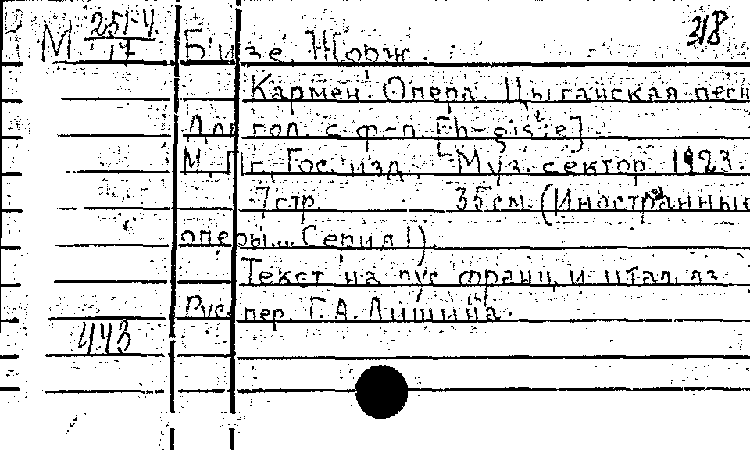 318
М 251-V
17
Бизе, Жорж.
Кармен. Опера. Цыганская песн
Для гол. с ф-п. [h-gis²; e]
М. Пг., Гос. изд. Муз. сектор 1923.
7 стр. 35 см. (Иностранные
оперы... Серия I).
Текст на рус. франц. и итал. яз.
Рус. пер. Г.А. Лишина.
443